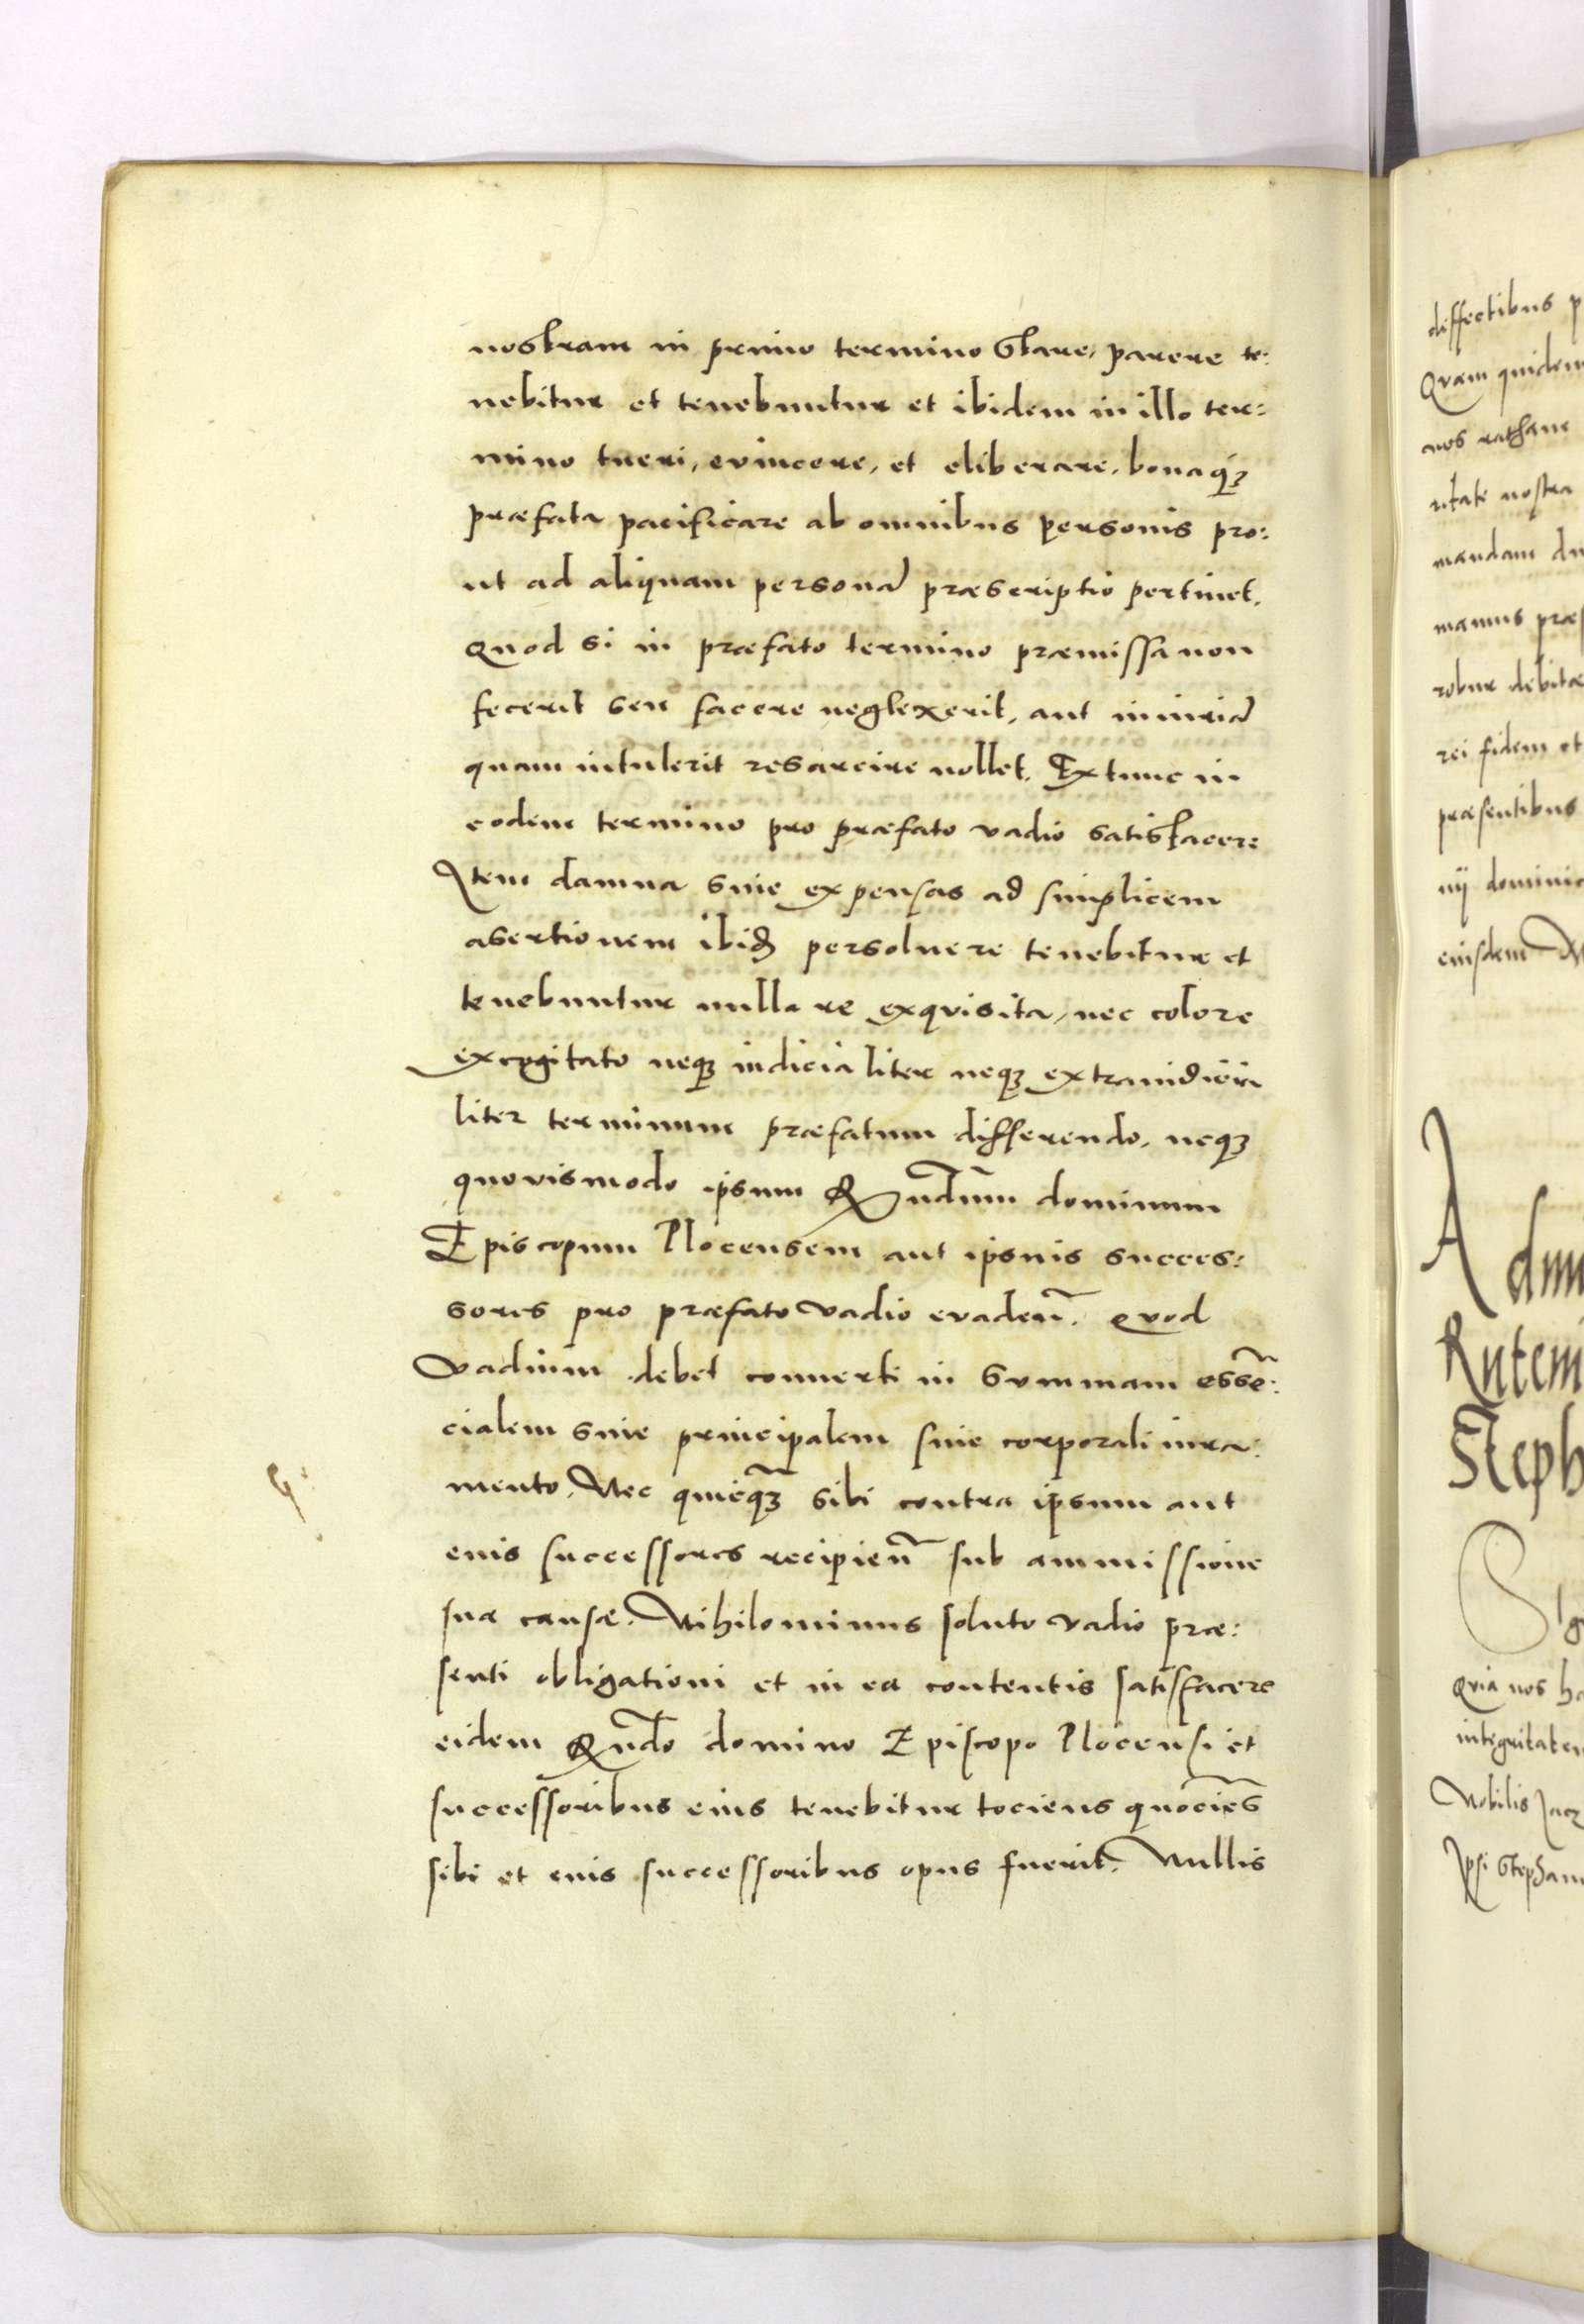 nostram in primo termino stare, parere te:
nebitur et tenebuntur et ibidem in illo ter:
mino tueri, evincere, et eliberare, bonaq;
præfata pacificare ab omnibus personis pro:
ut ad aliquam personã præscriptio pertinet.
Quod si in præfato termino præmissa non
fecerit seu facere neglexerit, aut iniuriã
quam intulerit resarcire nollet. Extunc in
eodem termino pro præfato vadio satisfacere
Item damna siue expensas ad simplicem
asertionem ibid persoluere tenebitur et
tenebuntur nulla re exqvisita, nec colore
excogitato neq; iudicialiter neq; extraiudicia
liter terminum præfatum differendo, neq;
quovismodo ipsum Rñdum dominum
Episcopum Plocensem aut ipsius succes:
sores pro præfato vadio evadeñ. Quod
Vadium debet conuerti in summam essẽ:
cialem siue principalem siue corporali iura:
mento. Nec quicq̃; sibi contra ipsum aut
eius successores recipieñ sub ammissione
suæ causæ. Nihilominus soluto vadio præ:
senti obligationi et in ea contentis satisfacere
eidem Rñdo domino Episcopo Plocensi et
successoribus eius tenebitur tociens quociẽs
sibi et eius successoribus opus fuerit. Nullis
diffectibus p
Qvam quidem
nos rathane
ritate nostra
mandam du
manus præs
robur debitæ
rei fidem et
præsentibus
nij dominic
eiusdem
Adm
Rutem
Steph
Sig
Qvia nos ha
integritatem
Nobilis Jac
Ipsi Stephan